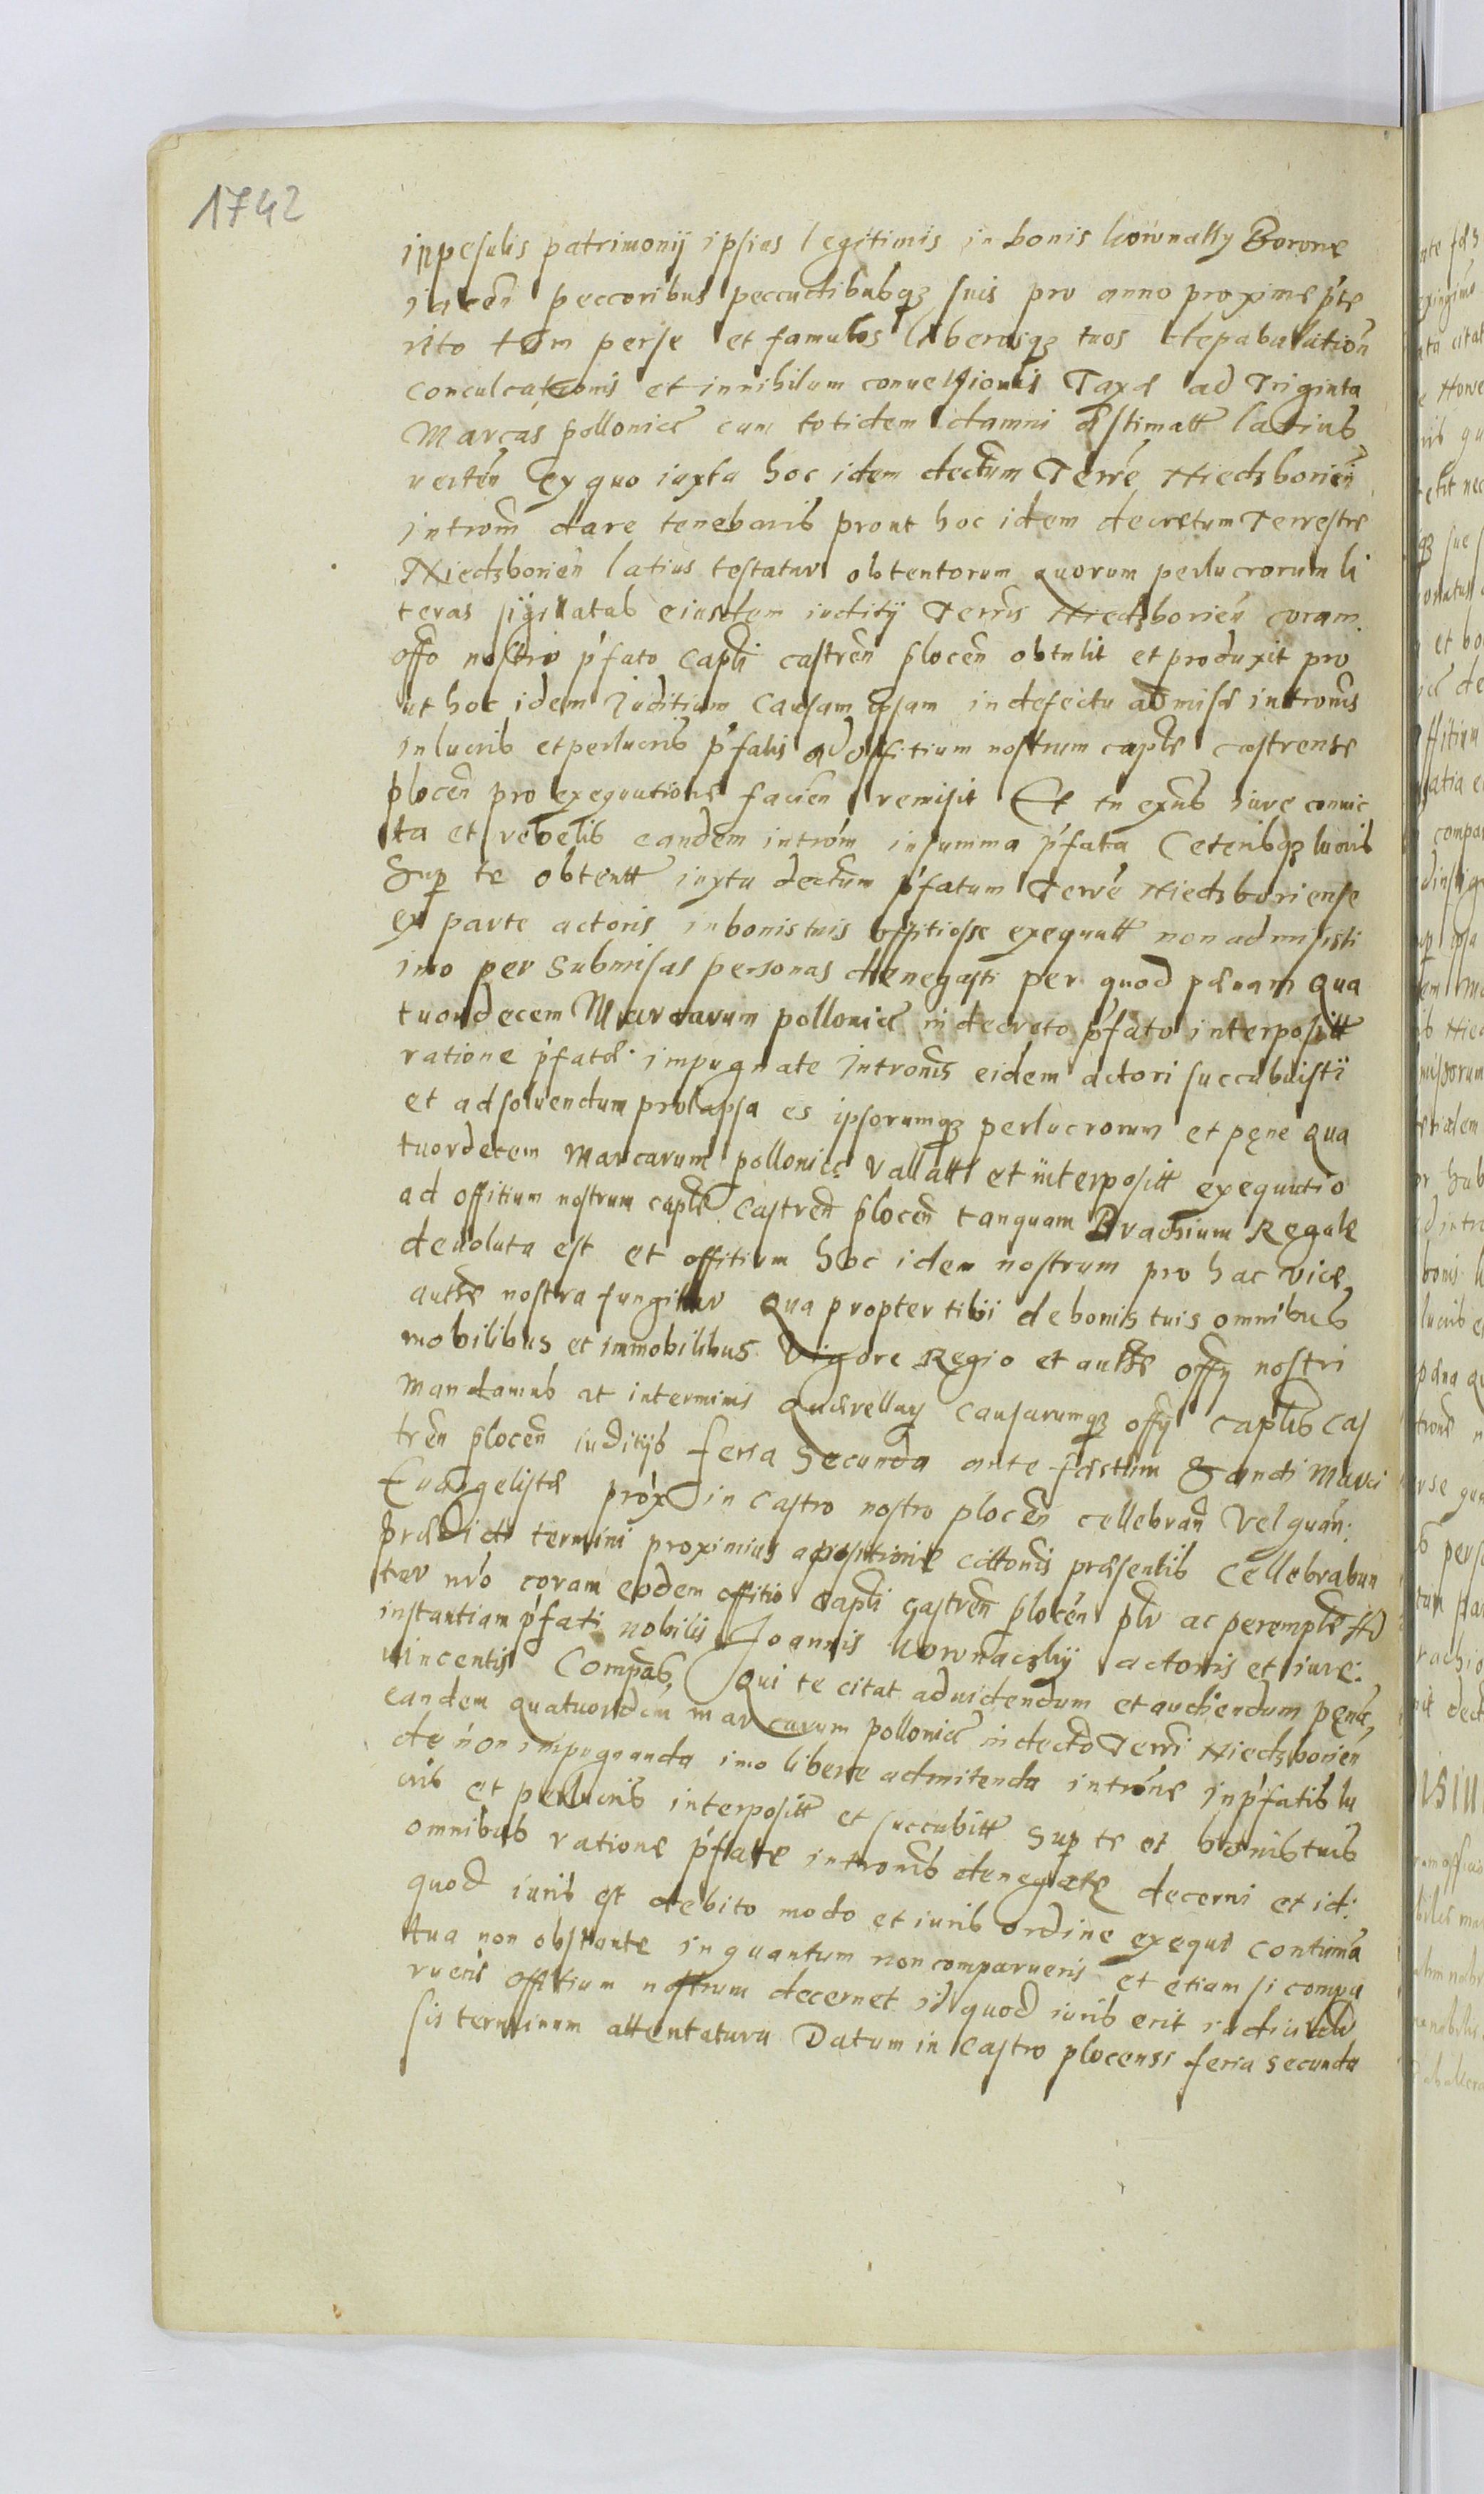 1742
in pesulis patrimonij ipsius legitimis in bonis kownatky Borowe
iacen̄ peccoribus peccudibusqz suis pro anno proxime p̄te
rito tam per se et famulos liberosqz tuos depabulation̄
conculcationis et in nihilum conuersionis Taxæ ad Triginta
Marcas pollonicæ cum totidem damni æstimatt̄ latius
verten̄ Ex quo iuxta hoc idem decr̄tum Terr̄e Niedzborien̄
introm̄ dare tenebaris prout hoc idem decretum Terrestre
Niedzborien̄ latius testatur obtentorum quorum perlucrorum li
teras sigillatas eiusdem iuditij Terrīs Niedzborien̄ coram
offo nostro p̄fato Capli castren̄ plocen̄ obtulit et produxit pro
ut hoc idem Juditium Causam ipsam in defectu admissæ introm̄is
in lucris et perlucris p̄fatis ad offitium nostrum caple castrense
plocen̄ pro exequutione facien̄ remisit Et tu ex n̄s iure convic
ta et rebelis eandem introm̄ in summa p̄fata Ceterisqz lucris
Sup te obtentt̄ iuxta decr̄tum p̄fatum Terr̄e Niedzboriense
ex parte actoris in bonis tuis offitiosse exequutt̄ non admisisti
imo per submissas personas denegasti per quod pænam qua
tuordecem Marcarum pollonicæ in decreto p̄fato interpositt̄
ratione p̄fatæ impugnate Introm̄is eidem actori succubuisti
et ad soluendum prolapsa es ipsorumqz perlucrorum et pęne qua
tuordecem marcarum pollonicę vallatt̄ et interpositt̄ exequutio
ad offitium nostrum caple Castren̄ plocen̄ tanquam Brachium Regale
deuoluta est et offitium hoc idem nostrum pro hac vice
autte nostra fungitur Qua propter tibi de bonis tuis omnibus
mobilibus et immobilibus Vigore Regio et autte offij nostri
mandamus ut in terminis Quærellarum Causarumqz offij Caplis Cas
tren̄ plocen̄ iuditijs feria Secunda ante fæstum Sancti Marci
Euangelistæ prox̄ in Castro nostro plocen̄ cellebran̄ Vel quan̄.
prædicti termini proximius a positione cittonis præsentis Cellebrabun
tur n̄ro coram eodem offitio capli castren̄ plocen̄ plr ac peremple Ad
instantiam p̄fati nobilis Joannis Kownaczkij actoris et iure
uincentis Compas Qui te citat ad uidendum et audiendum penæ
eandem quatuordem̄ marcarum pollonicæ in decrō Terrī Niedzborien̄
de non impugnanda imo libere admitenda introm̄e in p̄fatis lu
cris et perlucris interpositt̄ et succubitt̄ sup te et bonis tuis
omnibus ratione p̄fate introm̄is denegatæ decerni et id:
quod iuris est debito modo et iuris ordine exequi Contuma
tua non obstante in quantum non comparueris et etiam si compa
rueris offitium nostrum decernet id quod iuris erit iudicialr
sis terminum attentatura Datum in Castro plocensi feria secunda